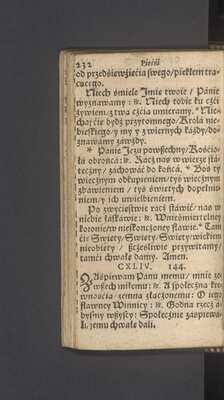 232 Pieśń
od przedsiewzięcia swego/ piekłem tra-
cącego.
Niech śmiele Imie twoie / Panie
wyznawamy : &. Niech tobie ku czci
żywiem/ z twą czcią umieramy. * Nie-
chayćie bydź przytomnego/ Krola nie-
bieskiego/ y my y z wiernych każdy/ do-
znawamy zawżdy.
* Panie Jezu powszechny/ Kościo-
ła obrońca: &. Racz nas w wierze sta-
teczny/ zachować do końca. * Boś ty
wiecznym odkupieniem/ tyś wiecznym
zbawieniem / tyś świętych dopełnie-
niem/ y ich uwielbieniem.
Po zwycięstwie racz stáwić/ nas w
niebie łáskáwie: &. W nieśmiertelney
koronie/ w nieskończoney sławie. * Tam
ćie Swięty/ Swięty/ Swięty/ wiekiem
nieobięty / szczęśliwie przywitamy/
tamći chwałę damy. Amen.
CXLIV. 144.
ZAśpiewam Panu memu/ mnie zo-
wszech miłemu: &. A społeczna kre-
wnością/ zemną złączonemu: O iego
sławney Winnicy: &. Godna rzecz a-
byśmy wszyscy: Społecznie zaśpiewa-
li, jemu chwałę dali.